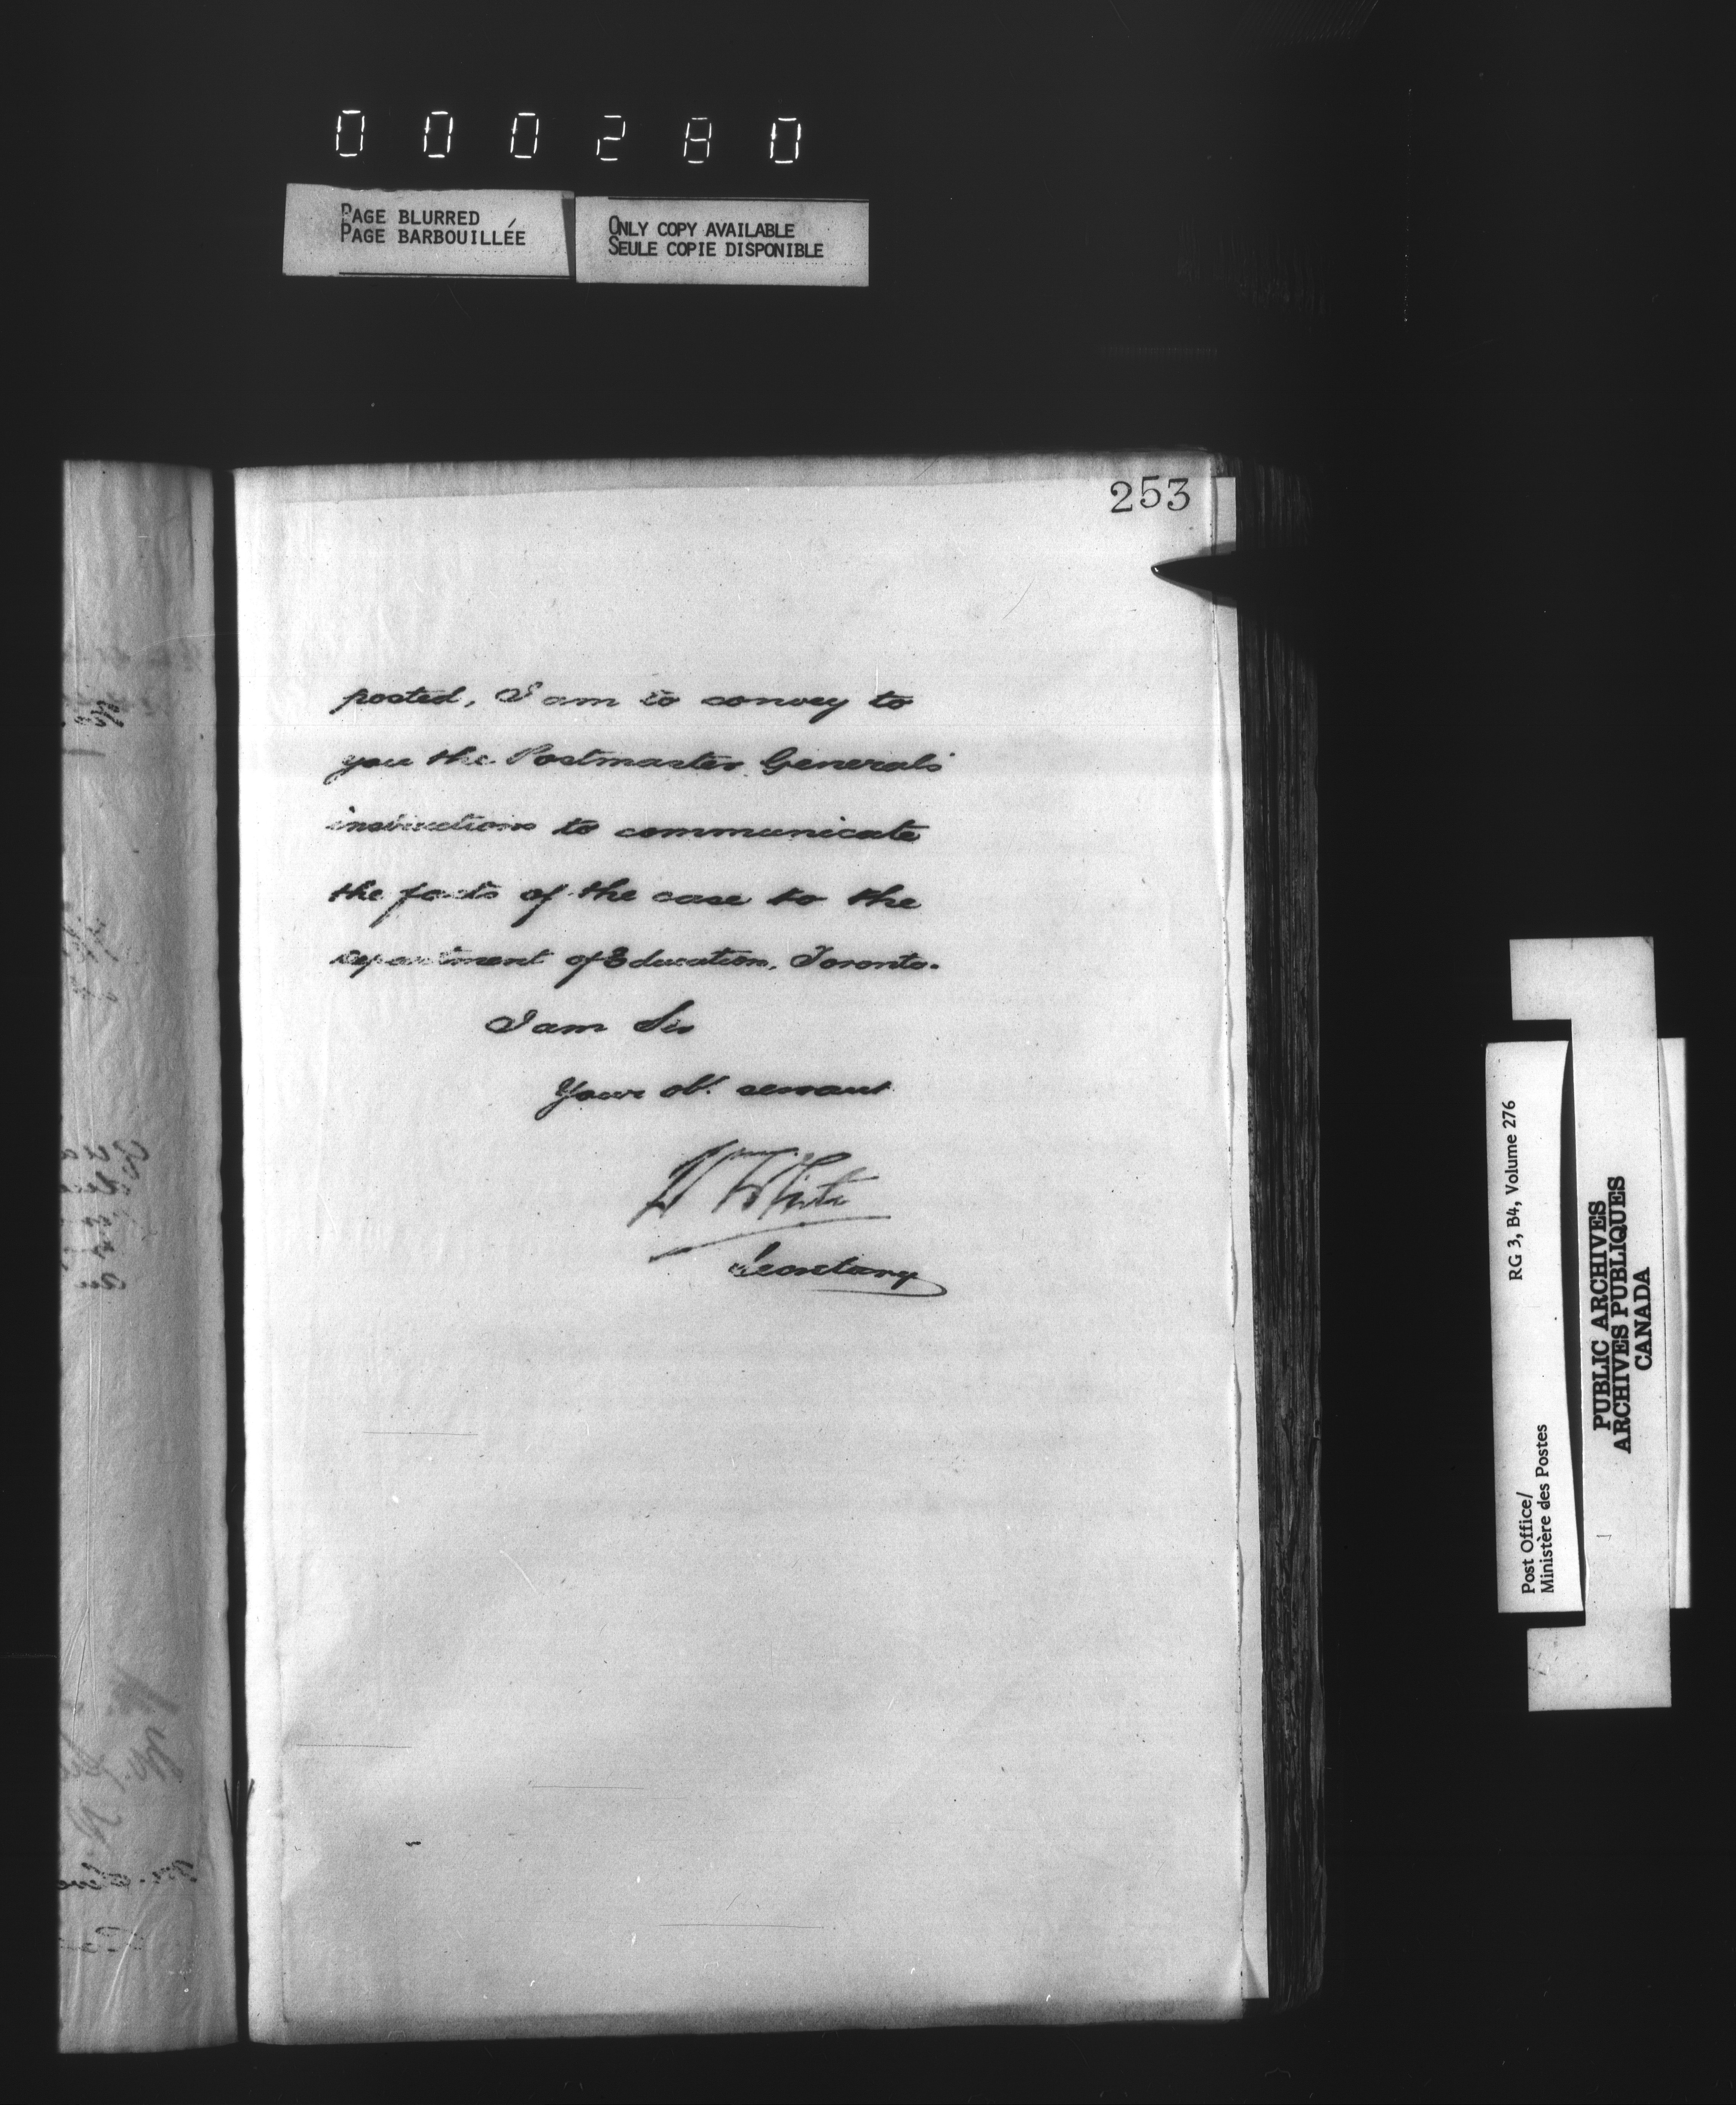 000280
PAGE BLURRED
PAGE BARBOUILLÉE
ONLY COPY AVAILABLE
SEULE COPIE DISPONIBLE
253
posted, I am to convey to
you the Postmaster General's
instructions to communicate
the facts of the case to the
department of Education, Toronto.
I am Sir
Your obt. servant
Wm White
Secretary
Post Office/
Ministère des Postes
RG 3, B4, Volume 276
PUBLIC ARCHIVES
ARCHIVES PUBLIQUES
CANADA